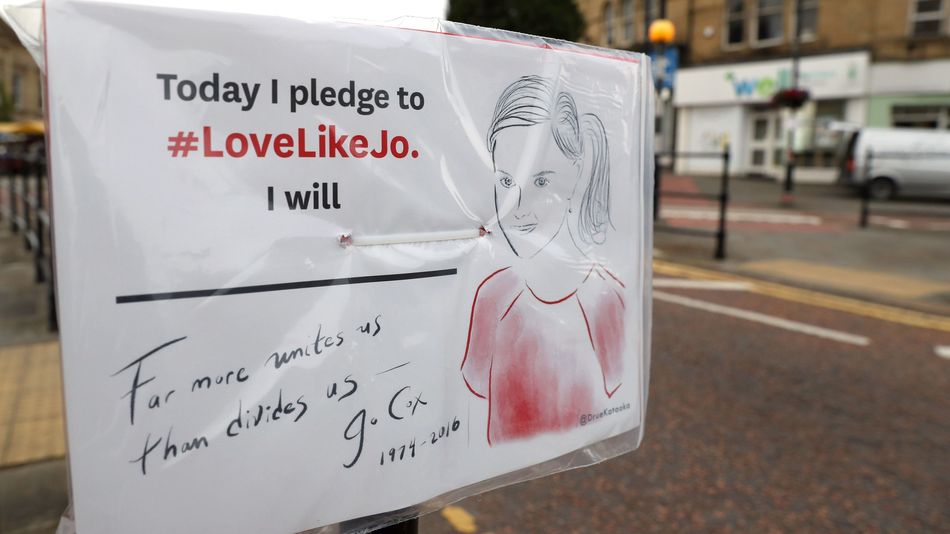 Today I pledge to
#LoveLikeJo.
I will
Far more unites us
than divides us —
Jo Cox
1974-2016
@DrueKataoka
well